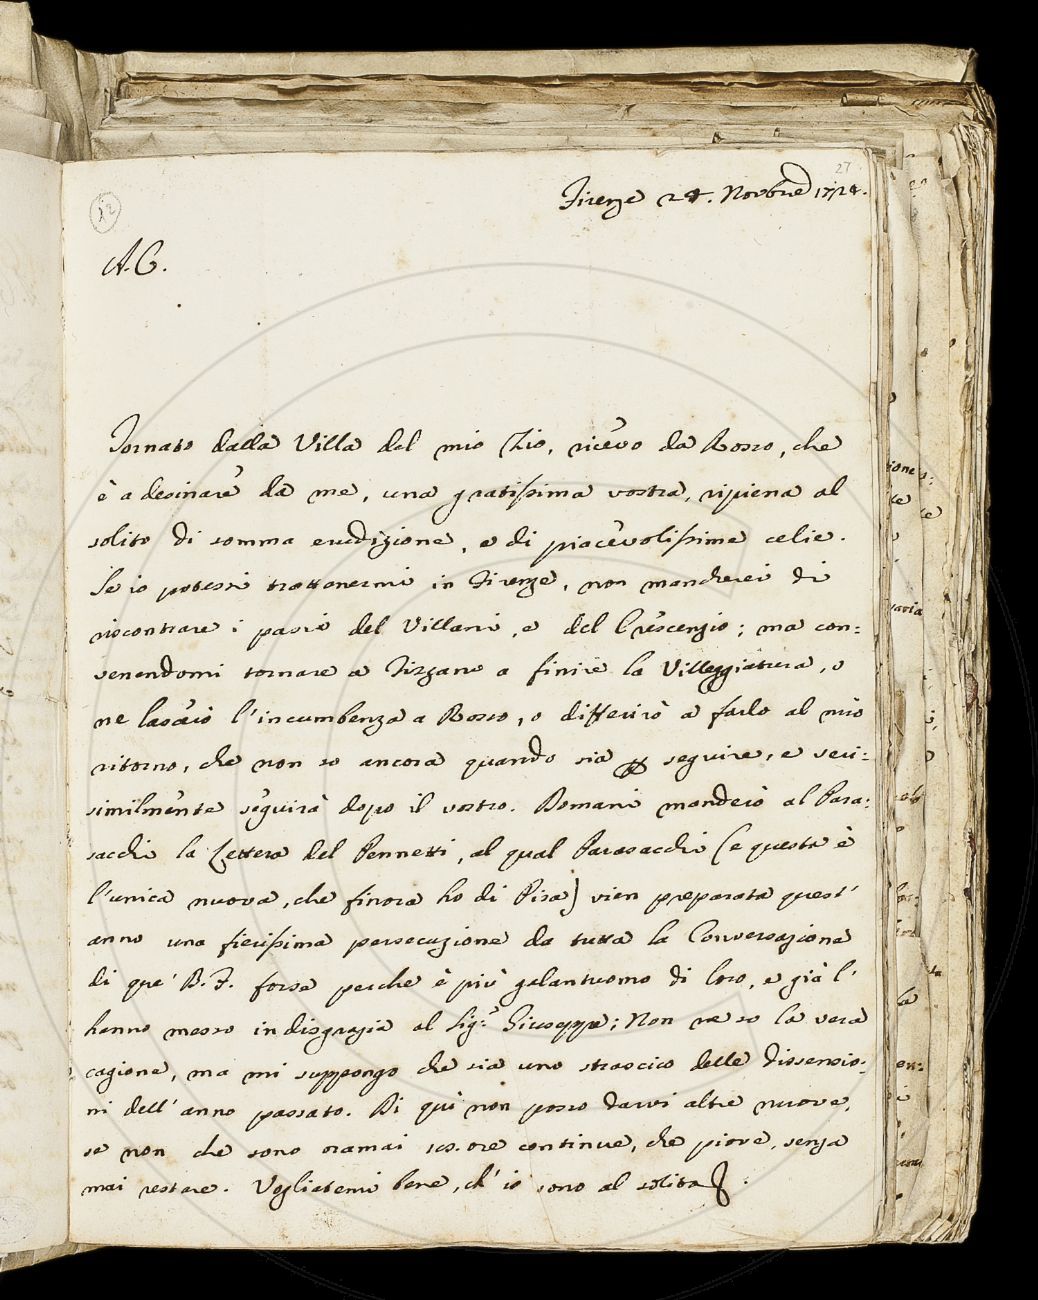 27
12
Firenze 24. Novbre 1728.
A. C.
Tornato dalla Villa del mio Zio, ricevo da Rosso, che
è a desinare da me, una gratissima vostra, ripiena al
solito di somma erudizione, e di piacevolissime celie.
Se io potessi trattenermi in Firenze, non mancherei di
riscontrare i passi del Villani, e del Crescenzio; ma con=
venendomi tornare a Tizzano a finire la Villeggiatura, o
ne lascerò l'incumbenza a Rosso, o differirò a farlo al mio
ritorno, che non so ancora quando sia p seguire, e veri=
similmente seguirà dopo il vostro. Domani manderò al Para=
sacchi la Lettera del Pennetti, al qual Parasacchi (e questa è
l'unica nuova, che finora ho di Pisa) vien preparata quest'
anno una fierissima persecuzione da tutta la Conversazione
di que' B. F. forse perche è più galantuomo di loro, e già l'
hanno messo in disgrazia al Sig.r Giuseppe; Non ne so la vera
cagione, ma mi suppongo che sia uno strascico delle dissensio=
ni dell'anno passato. Di quì non posso darvi altre nuove,
se non che sono oramai ore continue, che piove, senza
mai restare. Vogliatemi bene, ch' io sono al solito